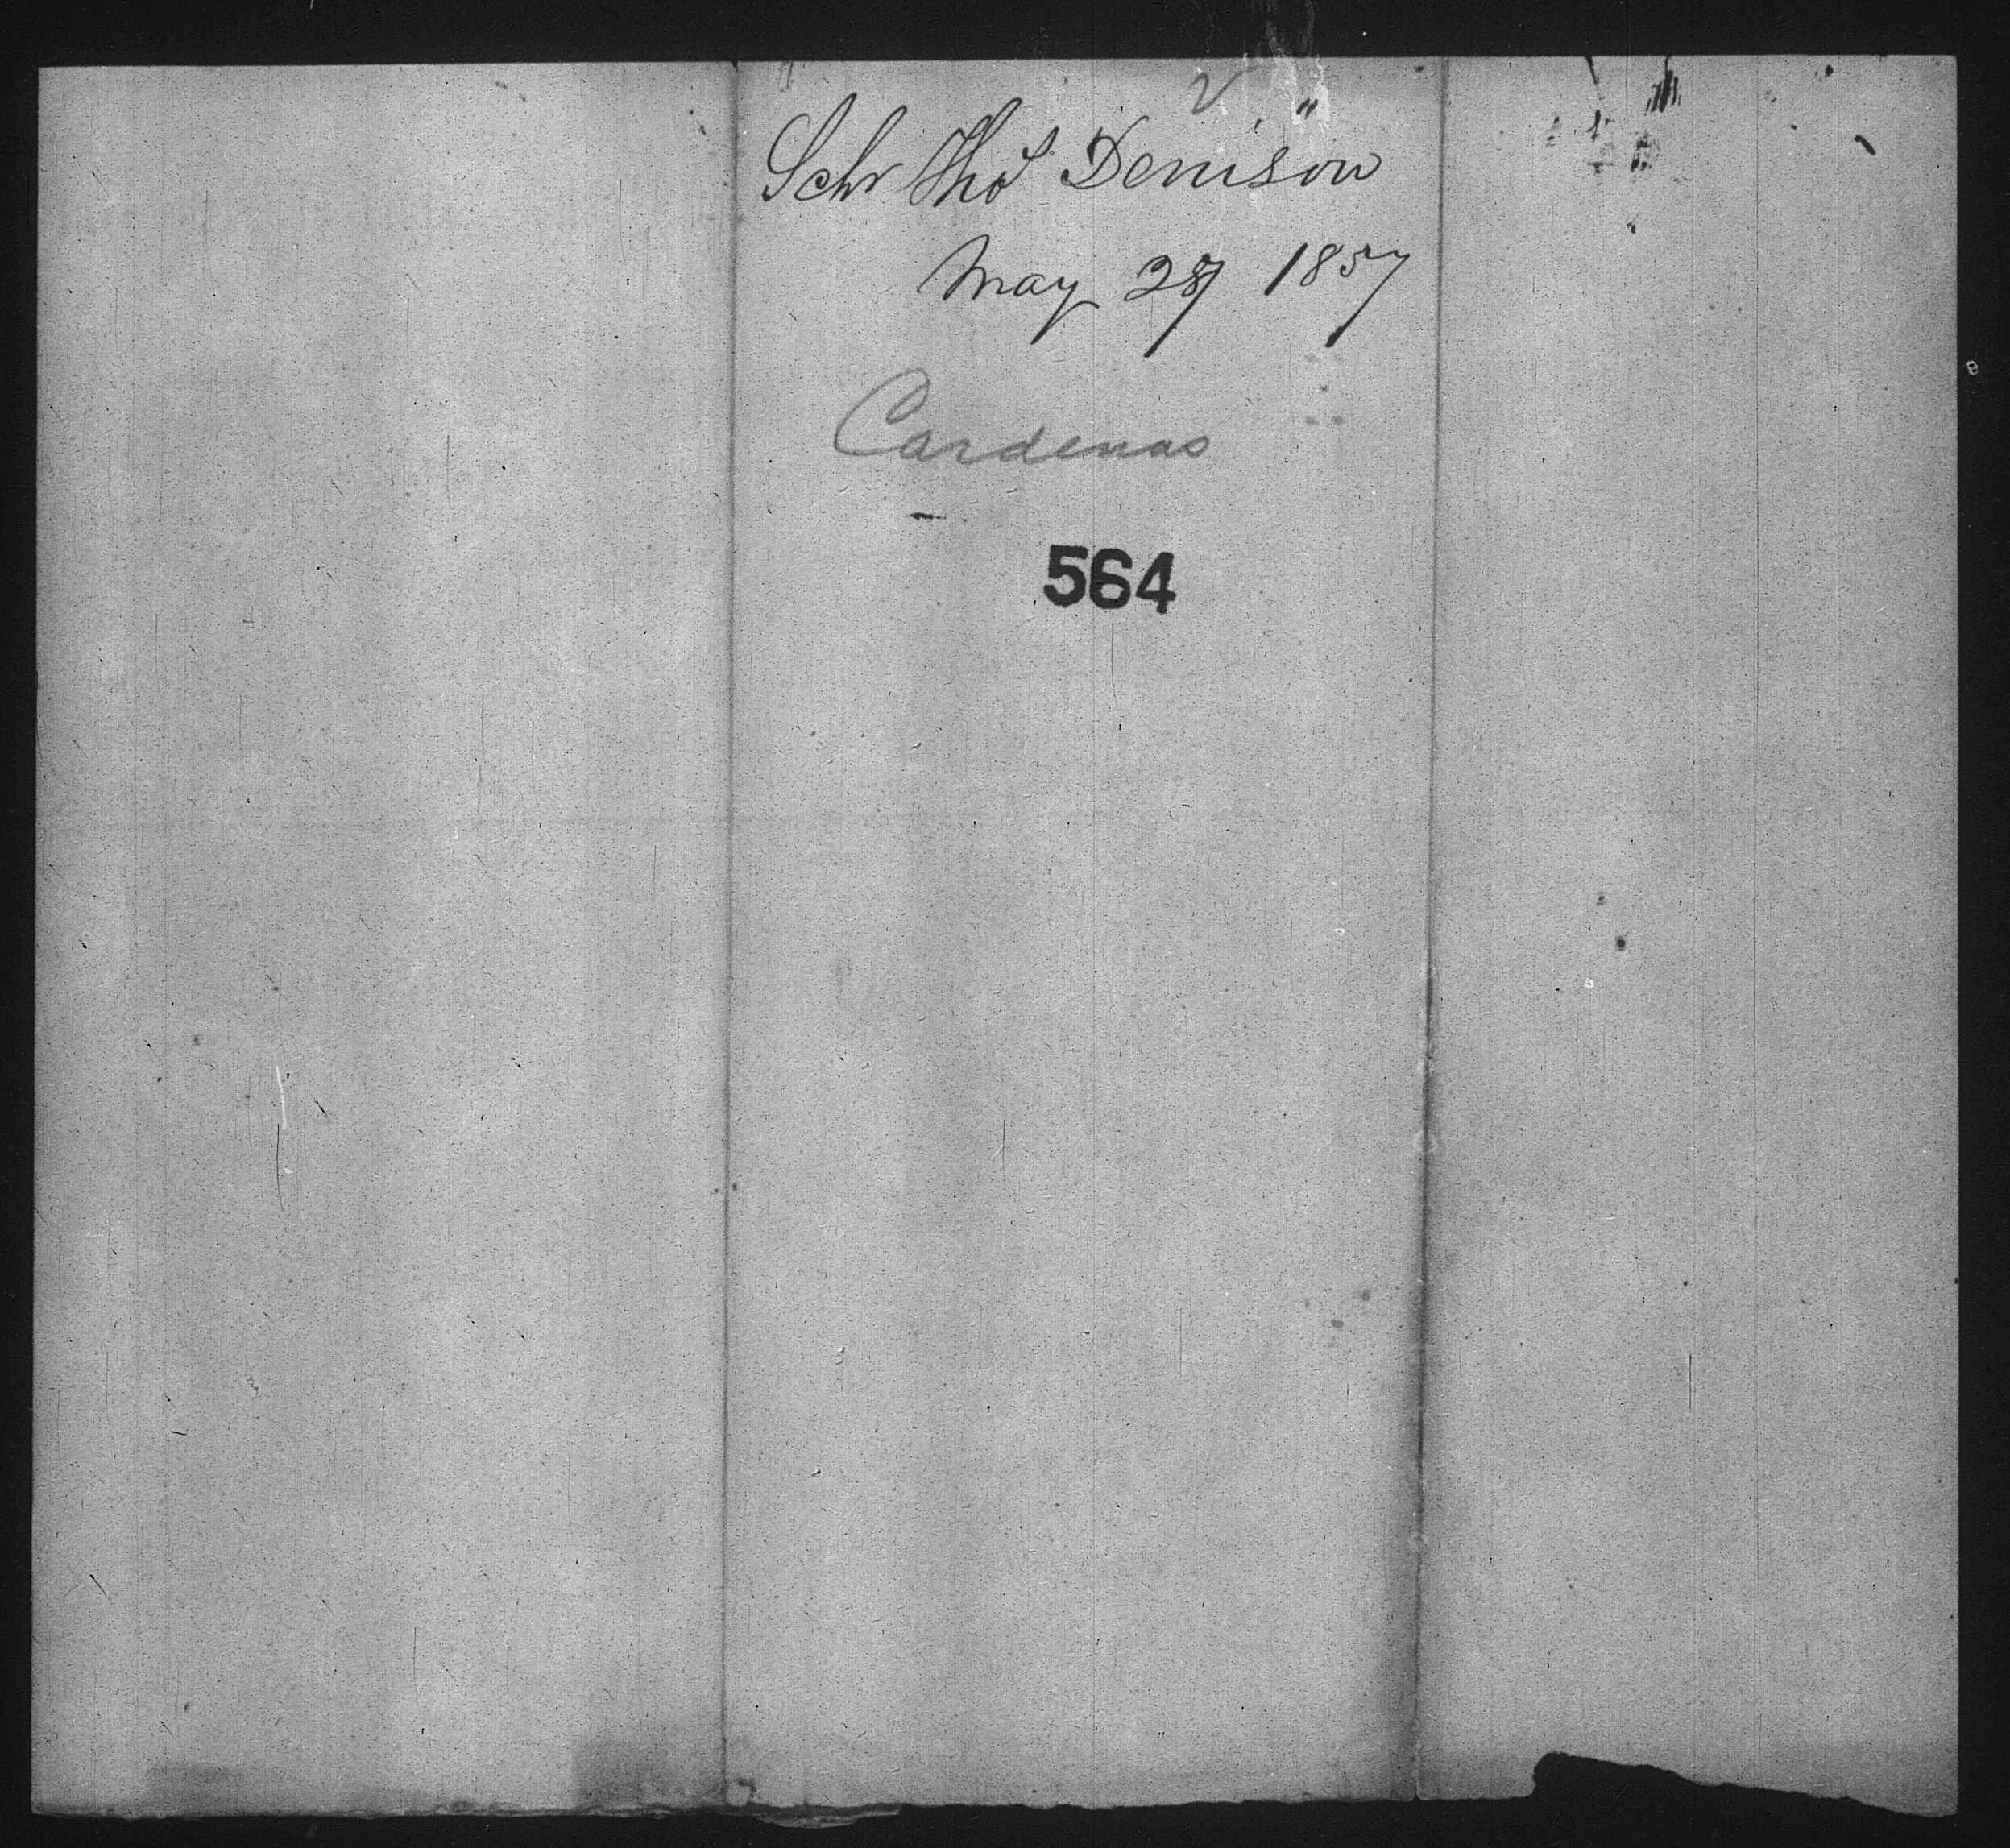 Schr Thos Denison
May 1857
Cardenas
564